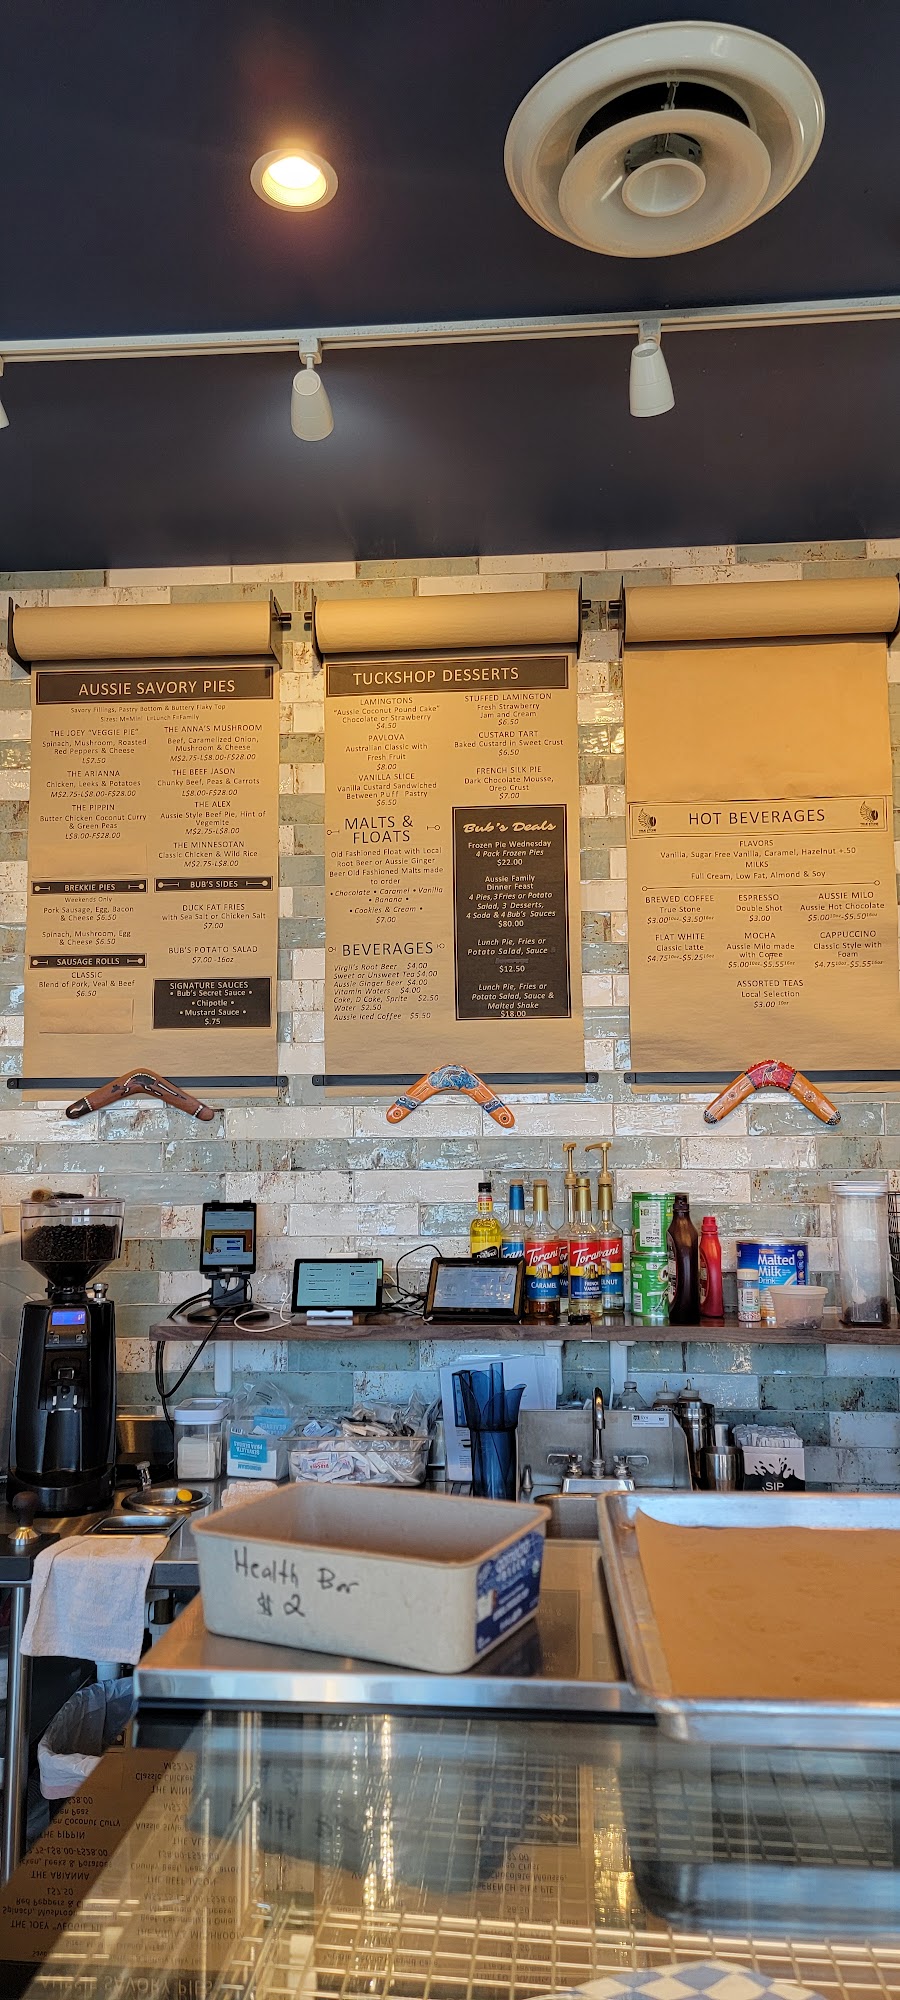 AUSSIE SAVORY PIES
Savory Fillings, Pastry Bottom & Buttery Flaky Top
Sizes: M=Mini L=Lunch F=Family
THE JOEY "VEGGIE PIE"
Spinach, Mushroom, Roasted
Red Peppers & Cheese
L$7.50
THE ARIANNA
Chicken, Leeks & Potatoes
M$2.75-L$8.00-F$28.00
THE PIPPIN
Butter Chicken Coconut Curry
& Green Peas
L$8.00-F$28.00
THE ANNA'S MUSHROOM
Beef, Caramelized Onion,
Mushroom & Cheese
M$2.75-L$8.00-F$28.00
THE BEEF JASON
Chunky Beef, Peas & Carrots
L$8.00-F$28.00
THE ALEX
Aussie Style Beef Pie, Hint of
Vegemite
M$2.75-L$8.00
THE MINNESOTAN
Classic Chicken & Wild Rice
M$2.75-L$8.00
BREKKIE PIES
Weekends Only
Pork Sausage, Egg, Bacon
& Cheese $6.50
Spinach, Mushroom, Egg
& Cheese $6.50
SAUSAGE ROLLS
CLASSIC
Blend of Pork, Veal & Beef
$6.50
BUB'S SIDES
DUCK FAT FRIES
with Sea Salt or Chicken Salt
$7.00
BUB'S POTATO SALAD
$7.00 -16oz
SIGNATURE SAUCES
• Bub's Secret Sauce •
• Chipotle •
• Mustard Sauce •
$.75
TUCKSHOP DESSERTS
LAMINGTONS
"Aussie Coconut Pound Cake"
Chocolate or Strawberry
$4.50
PAVLOVA
Australian Classic with
Fresh Fruit
$8.00
VANILLA SLICE
Vanilla Custard Sandwiched
Between Puff Pastry
$6.50
STUFFED LAMINGTON
Fresh Strawberry
Jam and Cream
$6.50
CUSTARD TART
Baked Custard in Sweet Crust
$6.50
FRENCH SILK PIE
Dark Chocolate Mousse,
Oreo Crust
$7.00
MALTS &
FLOATS
Old Fashioned Float with Local
Root Beer or Aussie Ginger
Beer Old Fashioned Malts made
to order
• Chocolate • Caramel • Vanilla
• Banana •
• Cookies & Cream •
$7.00
BEVERAGES
Virgil's Root Beer $4.00
Sweet or Unsweet Tea $4.00
Aussie Ginger Beer $4.00
Vitamin Waters $4.00
Coke, D Coke, Sprite $2.50
Water $2.50
Aussie Iced Coffee $5.50
Bub's Deals
Frozen Pie Wednesday
4 Pack Frozen Pies
$22.00
Aussie Family
Dinner Feast
4 Pies, 3 Fries or Potato
Salad, 3 Desserts,
4 Soda & 4 Bub's Sauces
$80.00
Lunch Pie, Fries or
Potato Salad, Sauce
$12.50
Lunch Pie, Fries or
Potato Salad, Sauce &
Malted Shake
$18.00
HOT BEVERAGES
FLAVORS
Vanilla, Sugar Free Vanilla, Caramel, Hazelnut +.50
MILKS
Full Cream, Low Fat, Almond & Soy
BREWED COFFEE
True Stone
$3.00¹⁰ᵒᶻ-$3.50¹⁶ᵒᶻ
ESPRESSO
Double Shot
$3.00
AUSSIE MILO
Aussie Hot Chocolate
$5.00¹⁰ᵒᶻ-$5.50¹⁶ᵒᶻ
FLAT WHITE
Classic Latte
$4.75¹⁰ᵒᶻ-$5.25¹⁶ᵒᶻ
MOCHA
Aussie Milo made
with Coffee
$5.00¹⁰ᵒᶻ-$5.55¹⁶ᵒᶻ
CAPPUCCINO
Classic Style with
Foam
$4.75¹⁰ᵒᶻ-$5.55¹⁶ᵒᶻ
ASSORTED TEAS
Local Selection
$3.00 ¹⁰ᵒᶻ
Torani
CARAMEL
Torani
FRENCH
VANILLA
Malted
Milk
Drink
SIP
Health Bar
$2